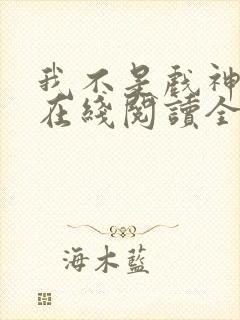 我不是戲神
在綫閱讀全
海木藍